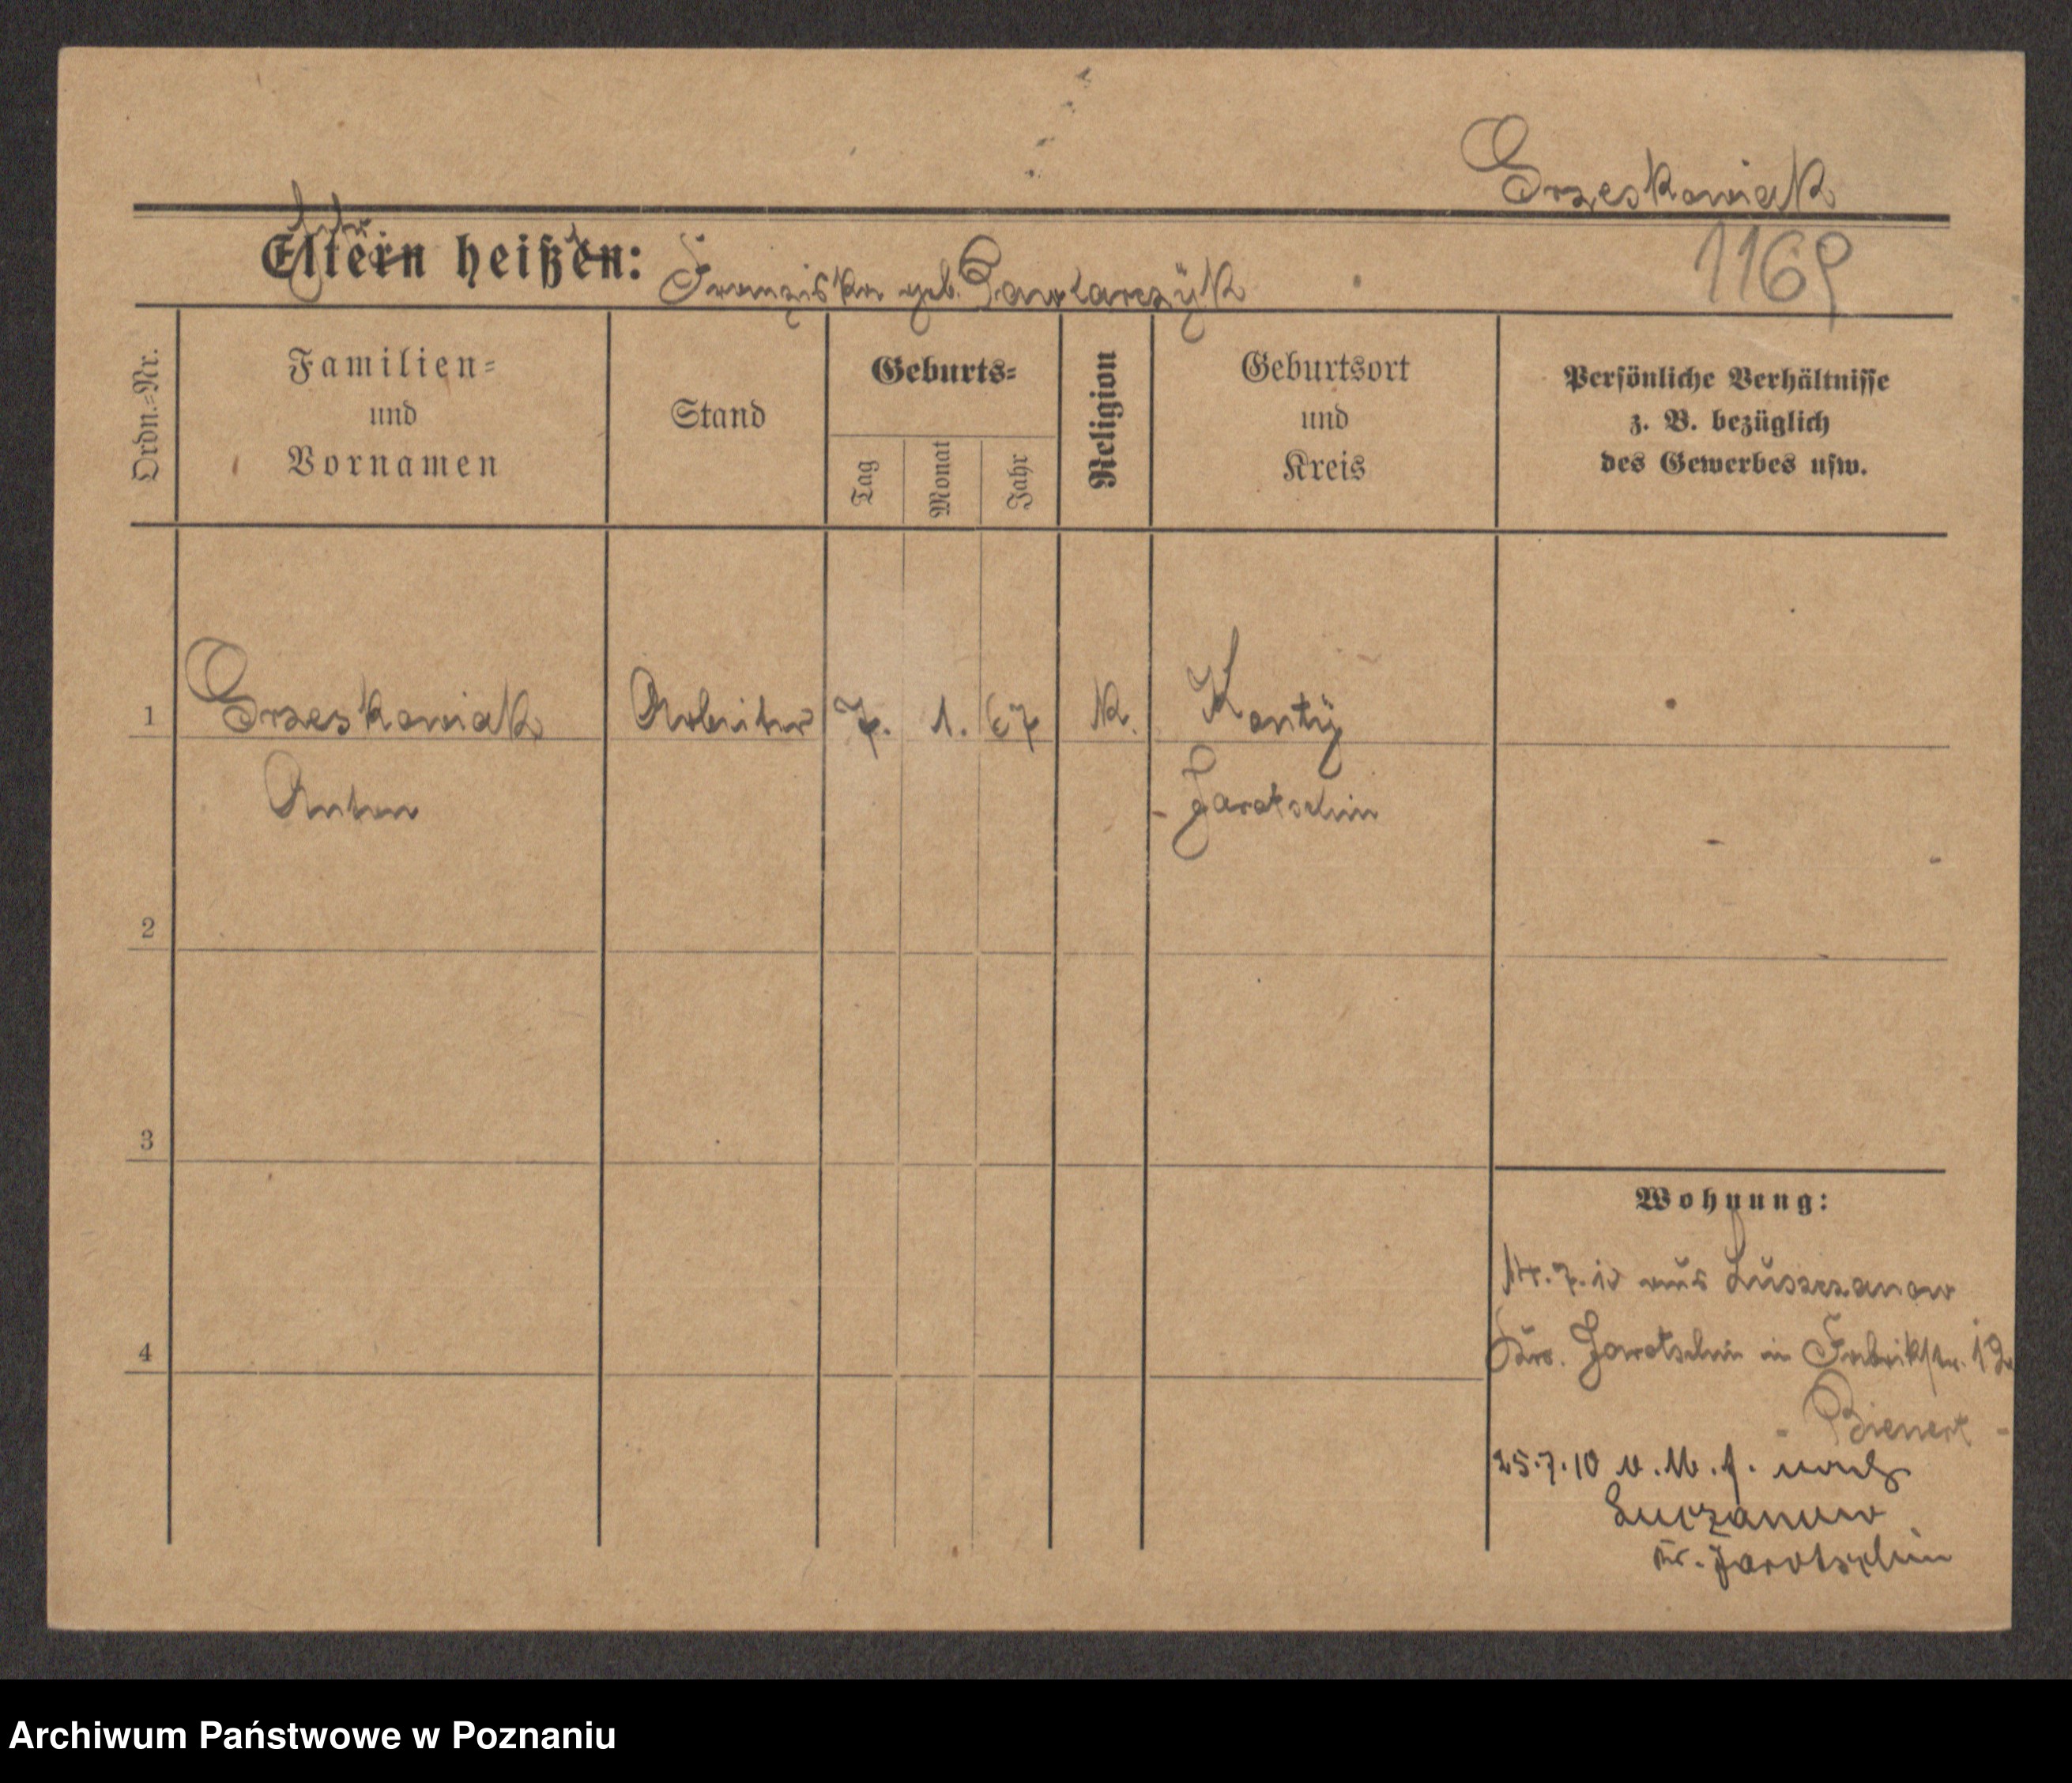 Grzeskowiak
Eltern heißen: Franziska geb. Gawlarczÿk
1169
Ordn.=Nr.
Familien=
und
Vornamen
Stand
Geburts=
Tag
Monat
Jahr
Religion
Geburtsort
und
Kreis
Persönliche Verhältnisse
z. B. bezüglich
des Gewerbes usw.
1 Grzeskowiak Arbeiter 7. 1. 67 K. Kontÿ
Anton Jarotschin
2
3
Wohnung:
14.7.10 aus Lusszczanow
Krs. Jarotschin in Fabrikstr. 12
4
- Bienert -
25.7.10 v. M. f. nach
Luczanow
Kr. Jarotschin
Archiwum Państwowe w Poznaniu